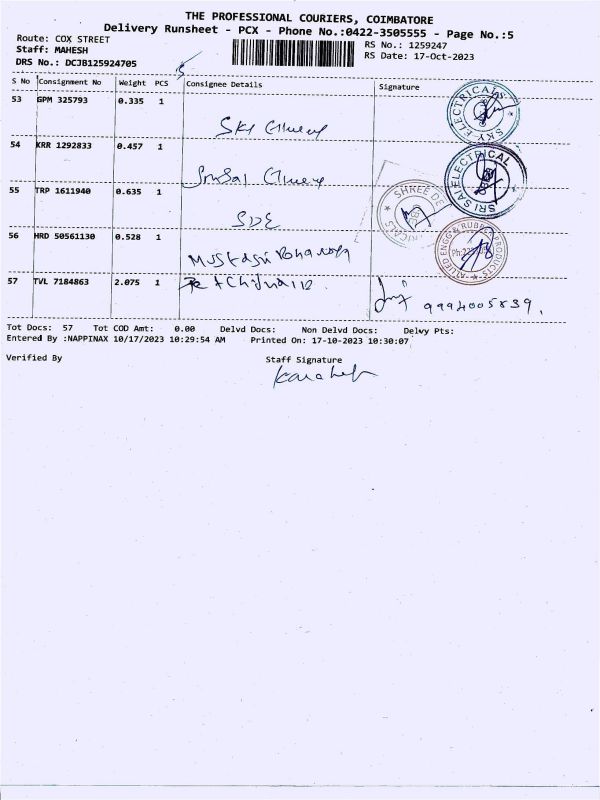 THE PROFESSIONAL COURIERS, COIMBATORE
Delivery Runsheet - PCX - Phone No.:0422-3505555 - Page No.:5
Route: COX STREET
RS No.: 1259247
Staff: MAHESH
RS Date: 17-Oct-2023
DRS No.: DCJB125924705
S No Consignment No Weight PCS Consignee Details Signature
53 GPM 325793 0.335 1
SKY-ELECTRICALS
54 KRR 1292833 0.457 1
SRI SAI ELECTRICAL
55 TRP 1611940 0.635 1
SHREE DE
SDE
56 HRD 50561130 0.528 1
ALLIED ENGG & RUBBER PRODUCTS
57 TVL 7184863 2.075 1
9994005839.
Tot Docs: 57 Tot COD Amt: 0.00 Delvd Docs: Non Delvd Docs: Delvy Pts:
Entered By :NAPPINAX 10/17/2023 10:29:54 AM Printed On: 17-10-2023 10:30:07
Verified By Staff Signature